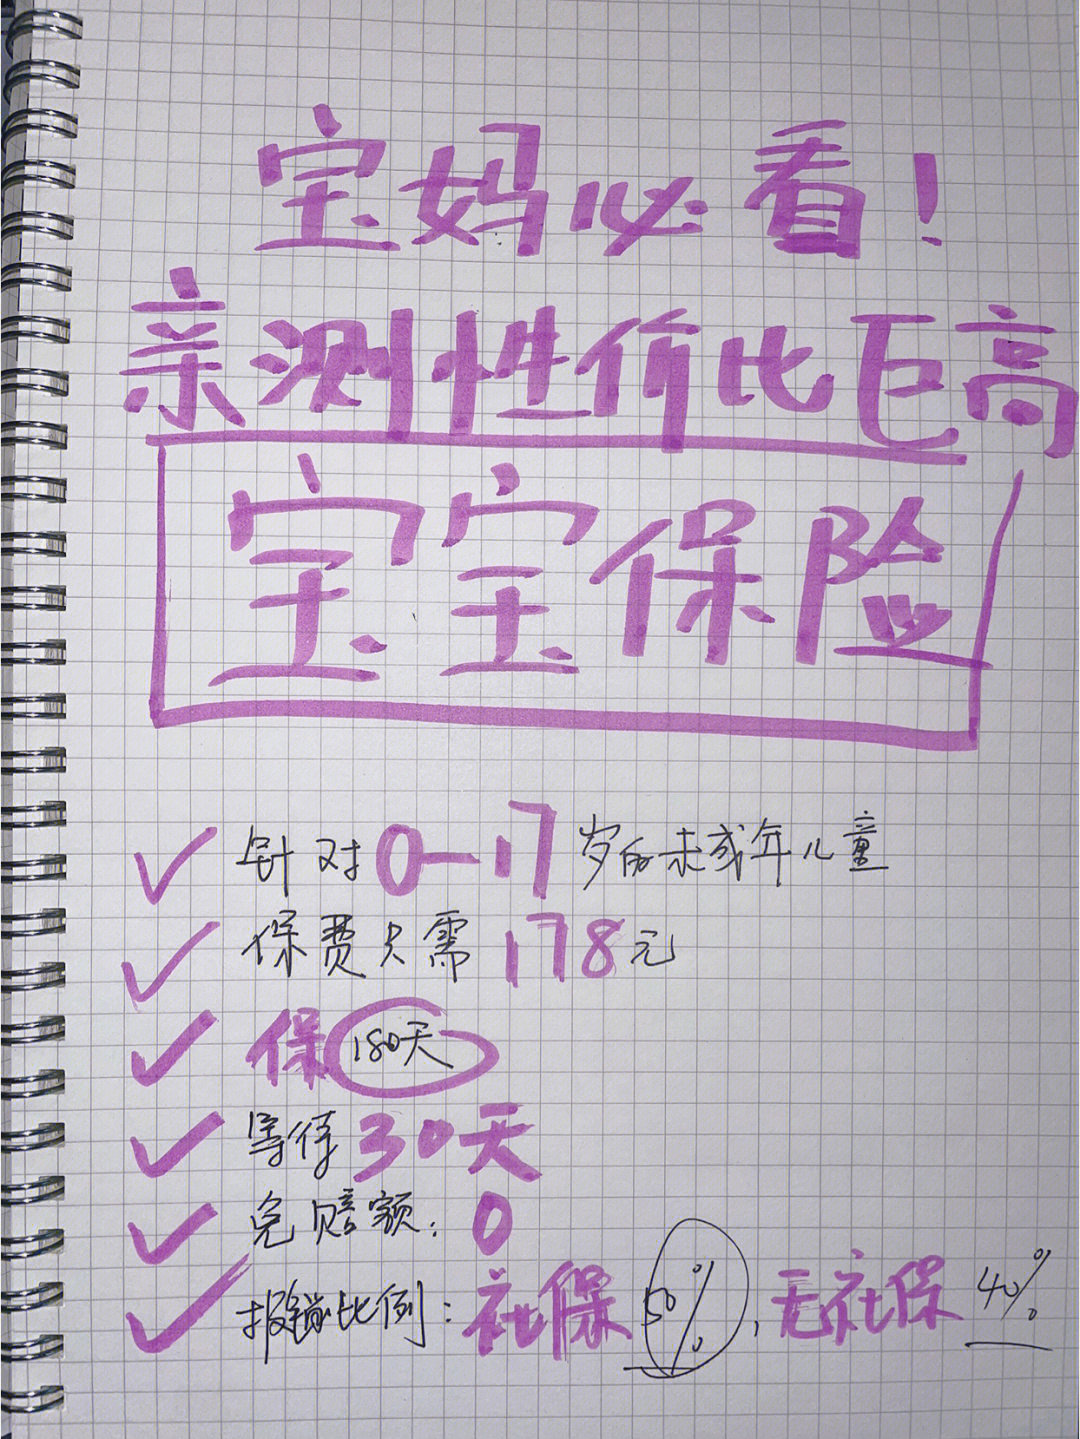 宝妈必看!
亲测性价比巨高
宝宝保险
针对0-17岁的未成年儿童
保费只需178元
保180天
等待30天
免赔额:0
报销比例:社保50%,无社保40%